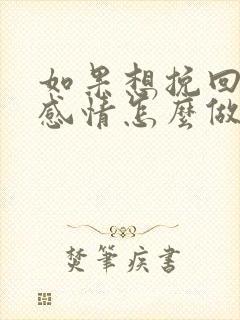 如果想挽回
感情怎麼做
焚筆疾書